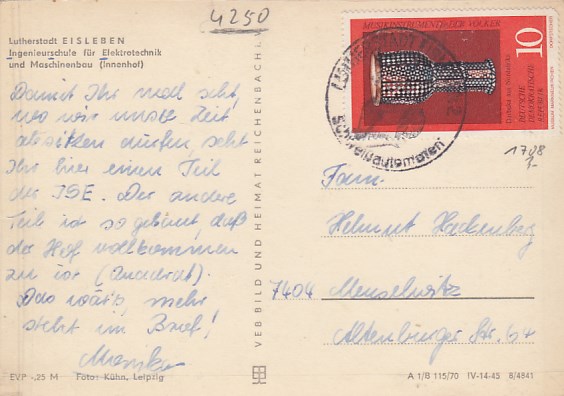 4250
Lutherstadt EISLEBEN
Ingenieurschule für Elektrotechnik
und Maschinenbau (Innenhof)
Damit Ihr mal seht,
wo wir unsre Zeit
absitzen dürfen, seht
Ihr hier einen Teil
der ISE. Der andere
Teil ist so gebaut, daß
der Hof vollkommen
zu ist (Quadrat).
Das wär's, mehr
steht im Brief!
Monika
EVP -,25 M Foto: Kühn, Leipzig
VEB BILD UND HEIMAT REICHENBACH i.
MUSIKINSTRUMENTE DER VÖLKER
10
DEUTSCHE
DEMOKRATISCHE
REPUBLIK
Schweißautomaten
1708
Fam.
Helmut Hackenberg
7404 Meuselwitz
Altenburger Str. 64
A 1/B 115/70 IV-14-45 8/4841